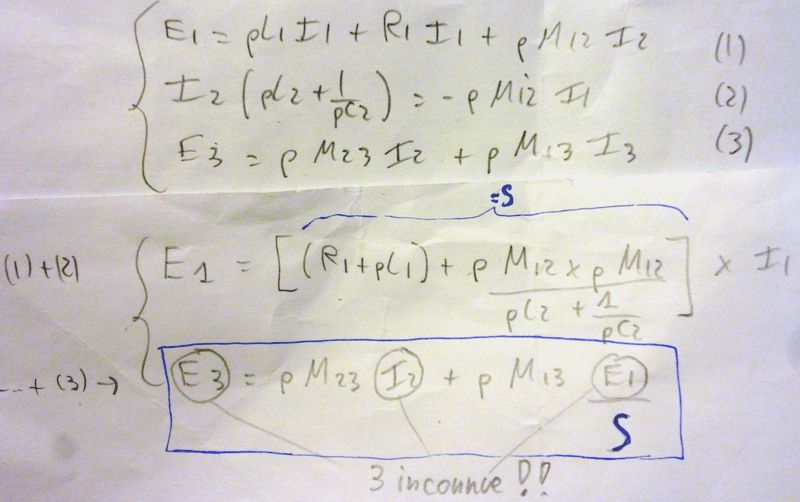 E1 = pL1 I1 + R1 I1 + p M12 I2 (1)
I2 (pL2 + 1/pC2) = - p M12 I1 (2)
E3 = p M23 I2 + p M13 I3 (3)
= S
(1) + (2) E1 = [(R1 + pL1) + p M12 x p M12 / pL2 + 1/pC2] x I1
... + (3) → E3 = p M23 I2 + p M13 E1/S
3 inconnue !!